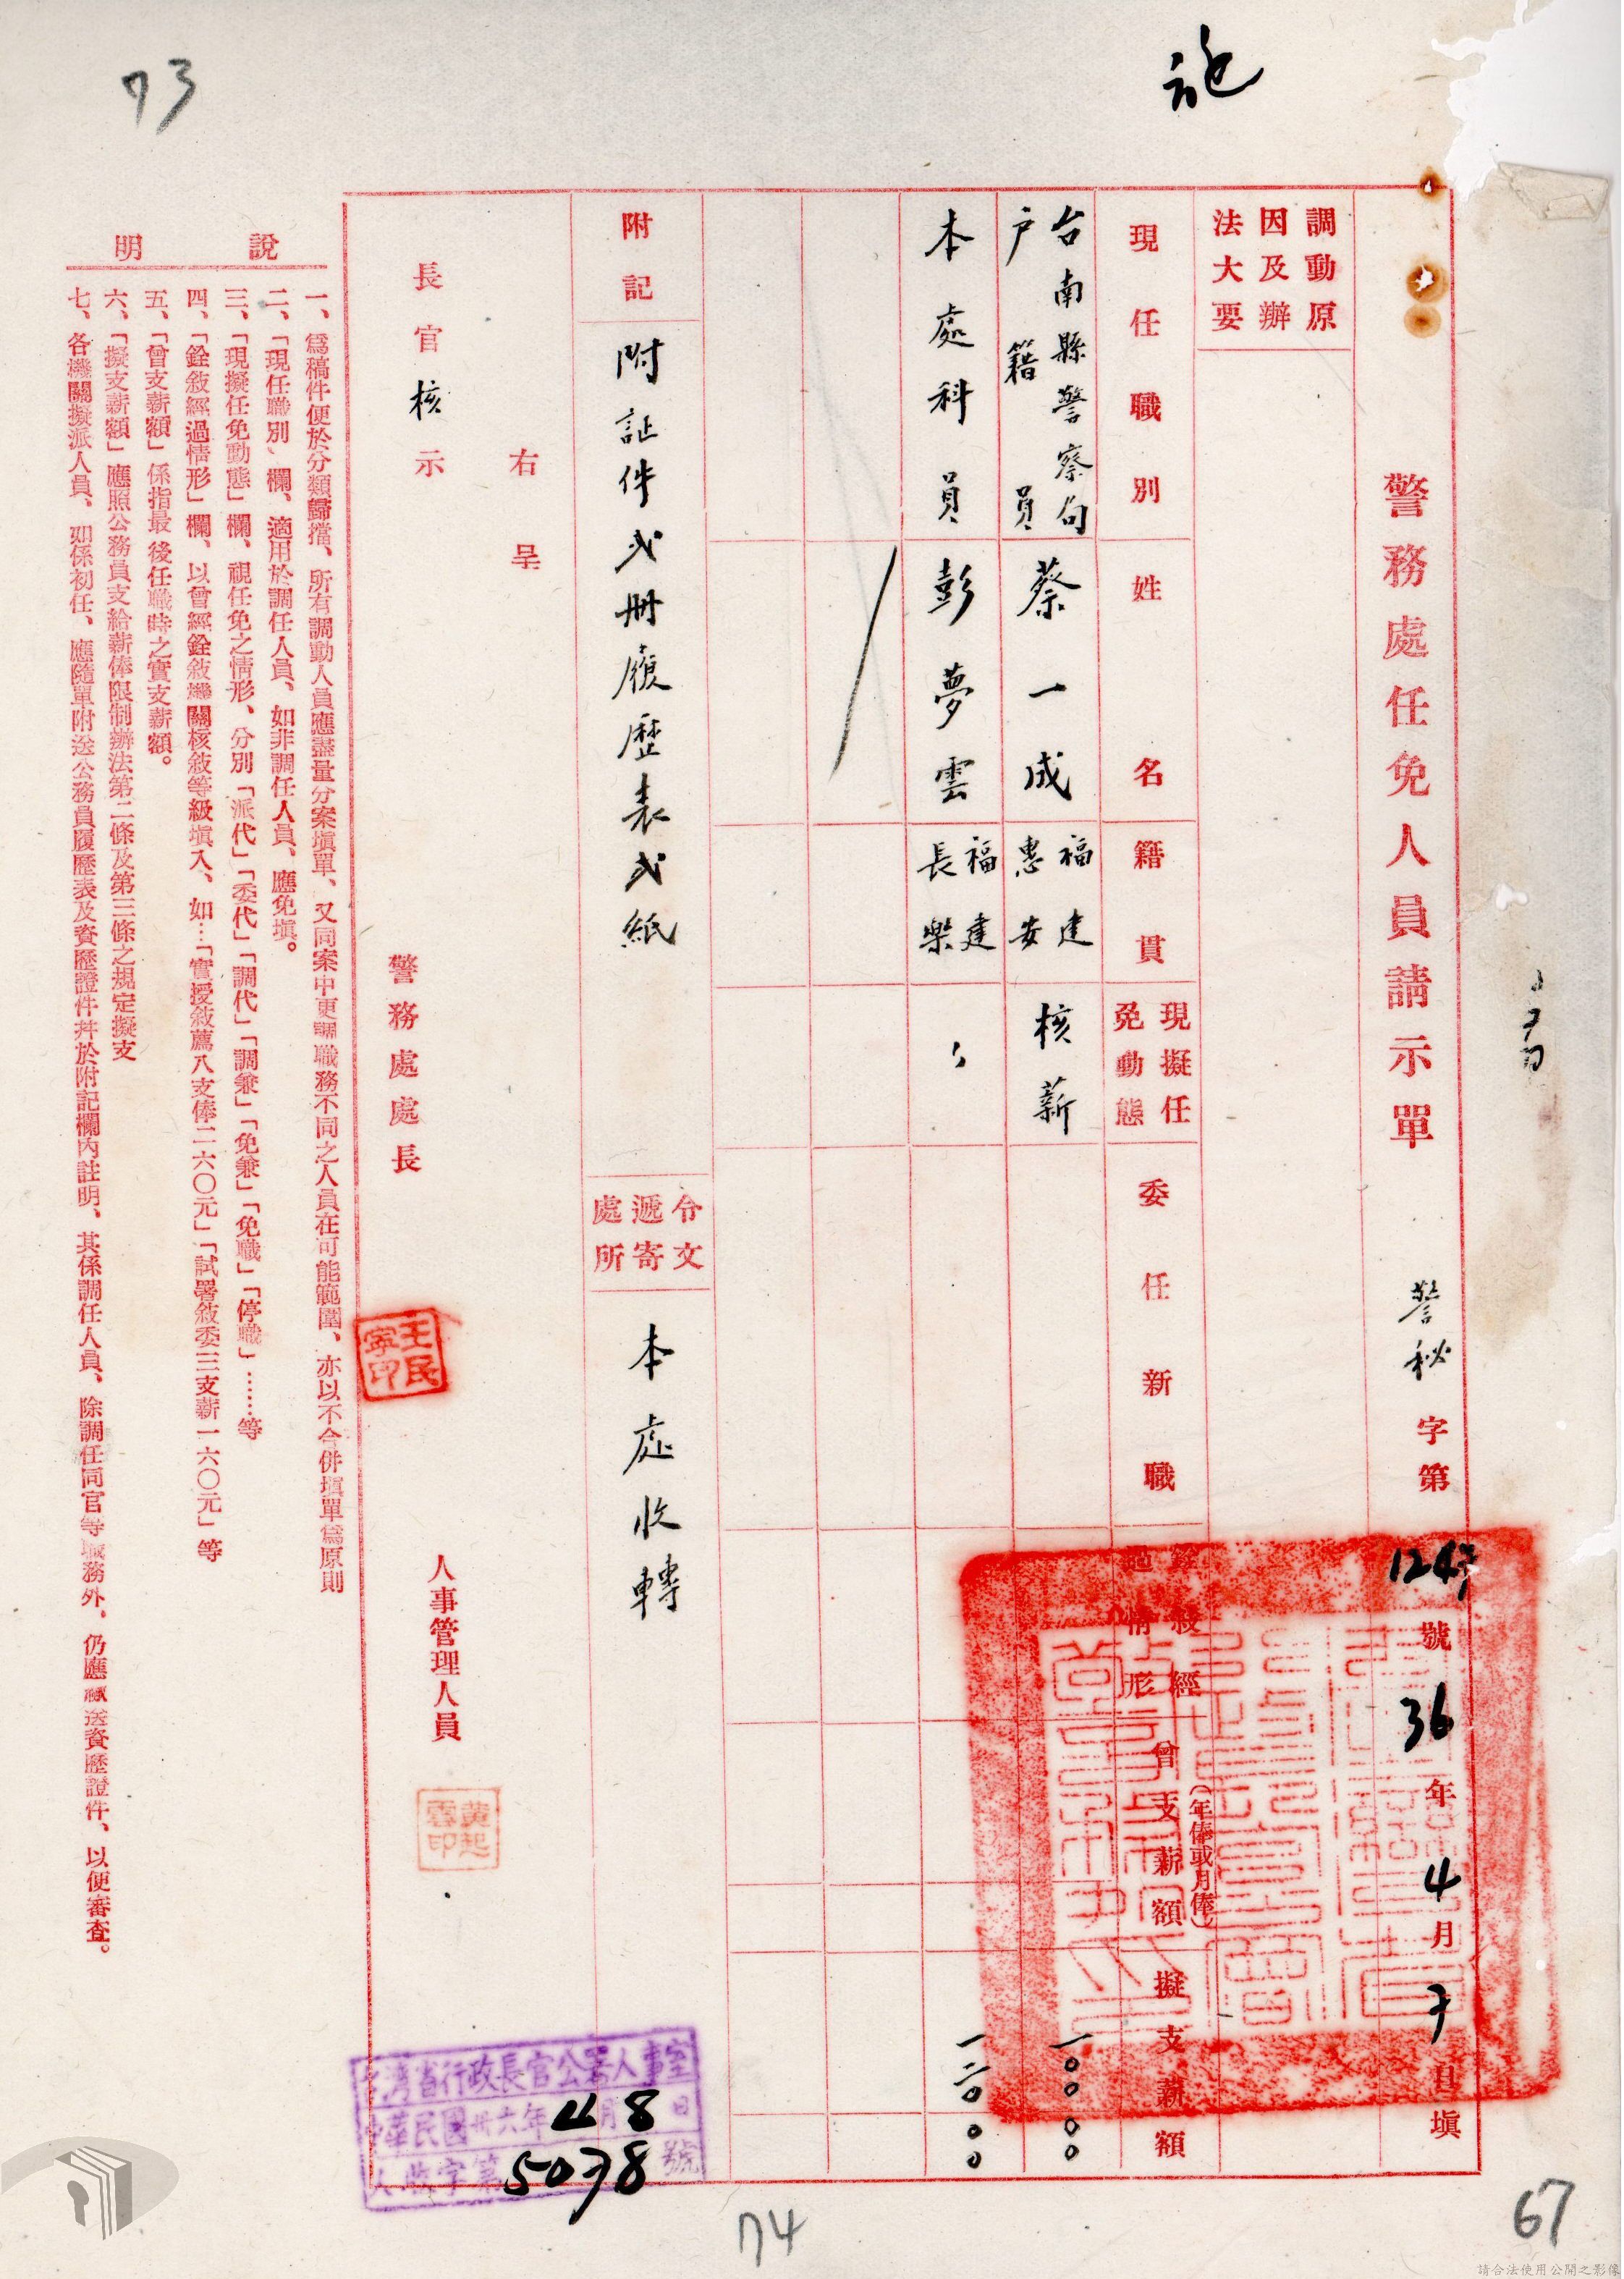 警務處任免人員請示單
警秘字第1247號36年4月7日填
調動原
因及辦
法大要
現任職別
姓名
籍貫
現擬任
免動態
委任新職
銓敍經
過情形
曾支薪額
（年俸或月俸）
擬支薪額
台南縣警察局
户籍員
蔡一成
福建
惠安
核薪
一〇〇〇〇
本處科員
彭夢雲
福建
長樂
〃
一二〇〇〇
附記
附証件弍册履歷表弍紙
令文
遞寄
處所
本處收轉
右呈
長官核示
警務處處長
王民
寧印
人事管理人員
黃起
雲印
說明
一、爲稿件便於分類歸檔、所有調動人員應盡量分案塡單、又同案中更調職務不同之人員在可能範圍、亦以不合併塡單爲原則
二、「現任職別」欄、適用於調任人員、如非調任人員、應免塡。
三、「現擬任免動態」欄、視任免之情形、分別「派代」「委代」「調代」「調兼」「免兼」「免職」「停職」……等
四、「銓敍經過情形」欄、以曾經銓敍機關核敍等級塡入、如…「實授敍薦八支俸二六〇元」「試署敍委三支薪一六〇元」等
五、「曾支薪額」係指最後任職時之實支薪額。
六、「擬支薪額」應照公務員支給薪俸限制辦法第二條及第三條之規定擬支
七、各機關擬派人員、如係初任、應隨單附送公務員履歷表及資歷證件幷於附記欄內註明、其係調任人員、除調任同官等職務外、仍應檢送資歷證件、以便審查。
台灣省行政長官公署人事室
中華民國卅六年4月8日
人收字第5078號
73
74
67
請合法使用公開之影像